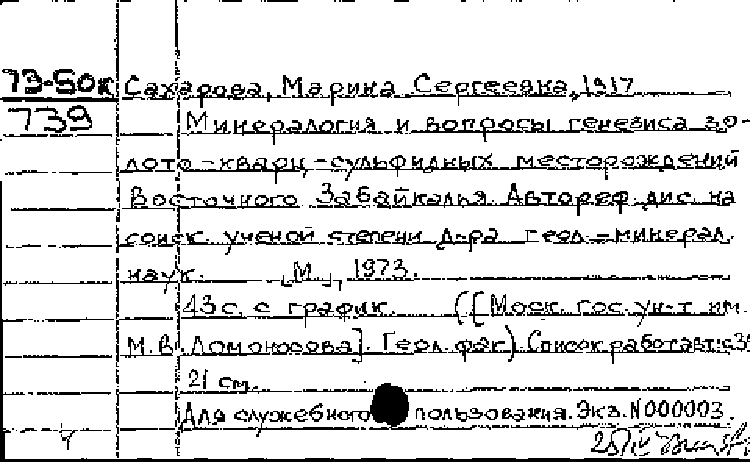 73-50к Сахарова, Марина Сергеевна, 1917
739 Минералогия и вопросы генезиса зо-
лото-кварц-сульфидных месторождений
Восточного Забайкалья. Автореф. дис. на
соиск. ученой степени д-ра геол.-минерал.
наук. [М.], 1973.
43 с. с график. ([Моск. гос. ун-т им.
М.В. Ломоносова]. Геол. фак). Список работ авт.: с 39
21 см.
Для служебного пользования. Экз. N000003.